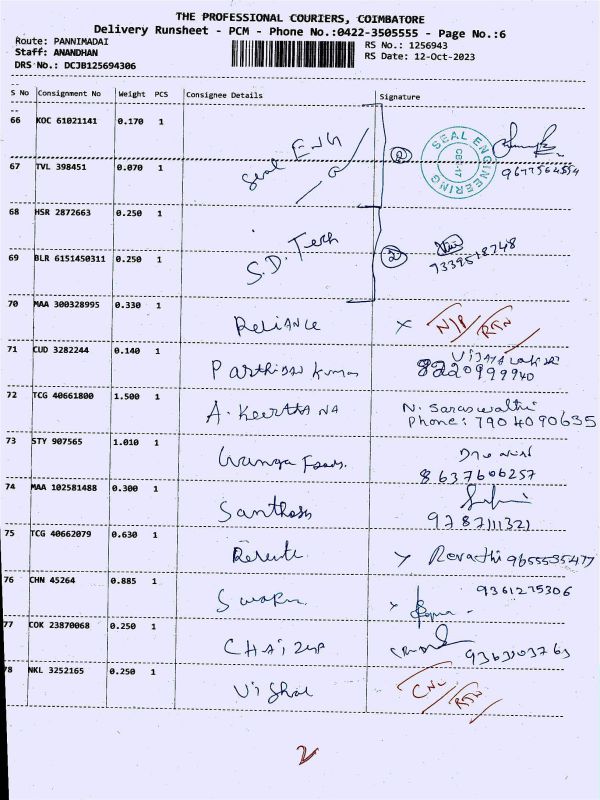 THE PROFESSIONAL COURIERS, COIMBATORE
Delivery Runsheet - PCM - Phone No.:0422-3505555 - Page No.:6
Route: PANNIMADAI
RS No.: 1256943
Staff: ANANDHAN
RS Date: 12-Oct-2023
DRS No.: DCJB125694306
S No Consignment No Weight PCS Consignee Details Signature
66 KOC 61021141 0.170 1 Seal ENG
SEAL ENGINEERING
67 TVL 398451 0.070 1 9677564554
68 HSR 2872663 0.250 1 S.D. Tech
69 BLR 6151450311 0.250 1 2 7339518748
70 MAA 300328995 0.330 1 RELIANCE X N/P/RTN
71 CUD 3282244 0.140 1 Parthiban Kumar
8220999940
72 TCG 40661800 1.500 1 A. Keertha NA N. Saraswathi
Phone: 7904090635
73 STY 907565 1.010 1 Foods.
8637606257
74 MAA 102581488 0.300 1 Santhosh
9787111321
75 TCG 40662079 0.630 1 Revathi 9655535477
76 CHN 45264 0.885 1 9361275306
77 COK 23870068 0.250 1
78 NKL 3252165 0.250 1 Vishal RTN
2